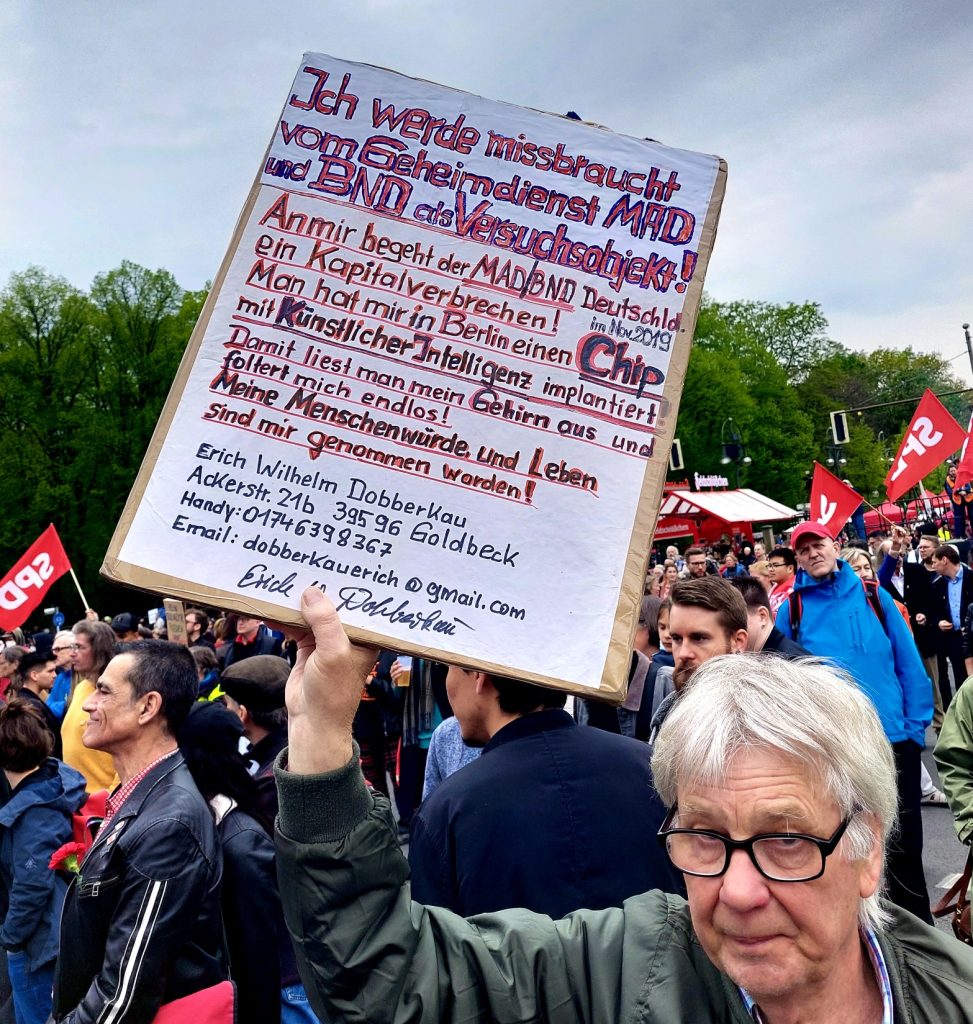 Ich werde missbraucht
vom Geheimdienst MAD
und BND als Versuchsobjekt!
An mir begeht der MAD/BND Deutschld.
ein Kapitalverbrechen! im Nov. 2019
Man hat mir in Berlin einen Chip
mit Künstlicher Intelligenz implantiert!
Damit liest man mein Gehirn aus und
foltert mich endlos!
Meine Menschenwürde, und Leben
sind mir genommen worden!
Erich Wilhelm Dobberkau
Ackerstr. 21b 39596 Goldbeck
Handy: 01746398367
Email: dobberkauerich@gmail.com
Erich W Dobberkau
SPD
SPD